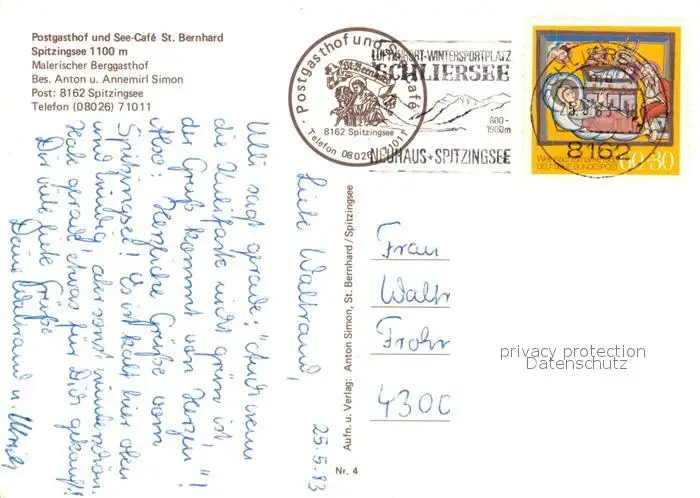 Postgasthof und See-Café St. Bernhard
Spitzingsee 1100 m
Malerischer Berggasthof
Bes. Anton u. Annemirl Simon
Post: 8162 Spitzingsee
Telefon (08026) 71011
Postgasthof und See-Café
St. Bernhard
8162 Spitzingsee
Telefon 08026/71011
LUFTKURORT-WINTERSPORTPLATZ
SCHLIERSEE
800-
1900m
NEUHAUS + SPITZINGSEE
8162
60+30
DEUTSCHE BUNDESPOST
25.5.83
Liebe Waltraud,
Ulli sagt gerade: "Auch wenn
die Tinte nicht grün ist,
der Gruß kommt von Herzen"!
Also Herzliche Grüße vom
Spitzingsee! Es ist kalt hier oben
und windig, aber sonst
Hab gerade etwas für Dich gekauft!
Dir viele liebe Grüße
Deine Waltraud u. Ulrich
Aufn. u. Verlag: Anton Simon, St. Bernhard/Spitzingsee
Nr. 4
Frau
Waltr
Frohn
4300
privacy protection
Datenschutz